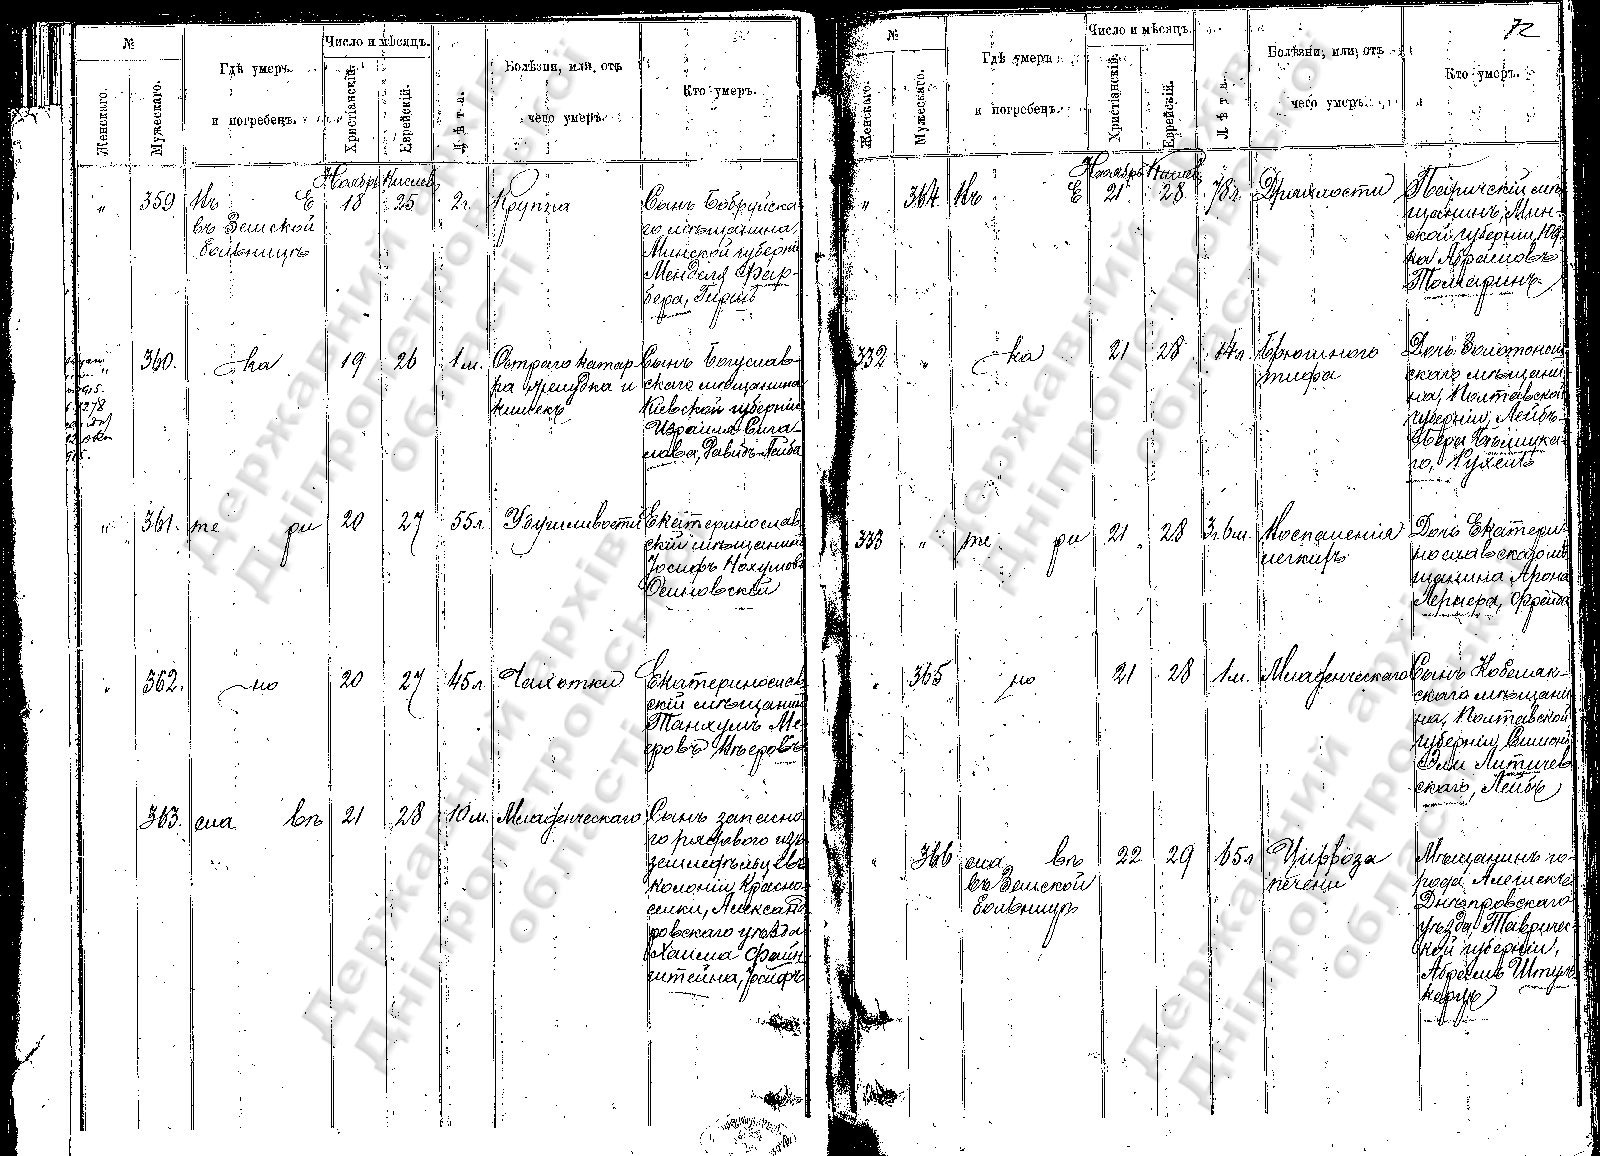 №
Женскаго.
Мужескаго.
Гдѣ умеръ
и погребенъ.
Число и мѣсяцъ.
Христіанскій.
Еврейскій.
Лѣта.
Болѣзни, или, отъ
чего умеръ.
Кто умеръ.
Ноябрь Кислевъ
„ 359 Въ Е 18 25 2г. Крупа
въ Земской
больницѣ
Сынъ Бобруйска-
го мѣщанина,
Минской губерніи
Менделя Фар-
бера, Гиршъ
„ 360. ка 19 26 1 м. Остраго катар-
ра желудка и
кишекъ
Сынъ Богуслав-
скаго мѣщанина
Кіевской губерніи
Израиля
Давидъ-Лейба
„ 361. те ри 20 27 55 л. Удушливости
Екатеринослав-
скій мѣщанинъ
Іосифъ Нохумовъ
Осиновскій
„ 362. но 20 27 45 л. Чахотки
Екатеринослав-
скій мѣщанинъ
Танхумъ Ме-
еровъ
363. сла вѣ 21 28 10 м. Младенческаго
Сынъ запасна-
го рядового изъ
земледѣльцевъ
колоніи Красно-
селки, Александ-
ровскаго уѣзда
Хаима Файн-
штейна,
72
№
Женскаго.
Мужескаго.
Гдѣ умеръ
и погребенъ.
Число и мѣсяцъ.
Христіанскій.
Еврейскій.
Лѣта.
Болѣзни, или, отъ
чего умеръ.
Кто умеръ.
Ноябрь Кислевъ
„ 364 Въ Е 21 28 78 л. Дряхлости
Паричскій мѣ-
щанинъ, Мин-
ской губерніи, Юд-
ка Абрамовъ
Толчаринъ
332 „ ка 21 28 14 л. Брюшного
тифа
Дочь Золотонош-
скаго мѣщани-
на, Полтавской
губерніи, Лейбъ-
Бера Бѣлицка-
го, Рухель
333 „ те ри 21 28 3г. 6 м. Воспаленія
легкихъ
Дочь Екатери-
нославскаго мѣ-
щанина Арона
Лернера, Фрейда
„ 365 но 21 28 1 м. Младенческаго
Сынъ Кобеляк-
скаго мѣщани-
на, Полтавской
губерніи, Симона
Эли Литичев-
скаго, Лейбъ
„ 366 сла вѣ 22 29 65 л Цирроза
въ Земской
больницѣ
печени
Мѣщанинъ го-
рода Алешекъ
Днѣпровскаго
уѣзда Тавричес-
кой губерніи,
Абрамъ
Державний архів
Дніпропетровської
області